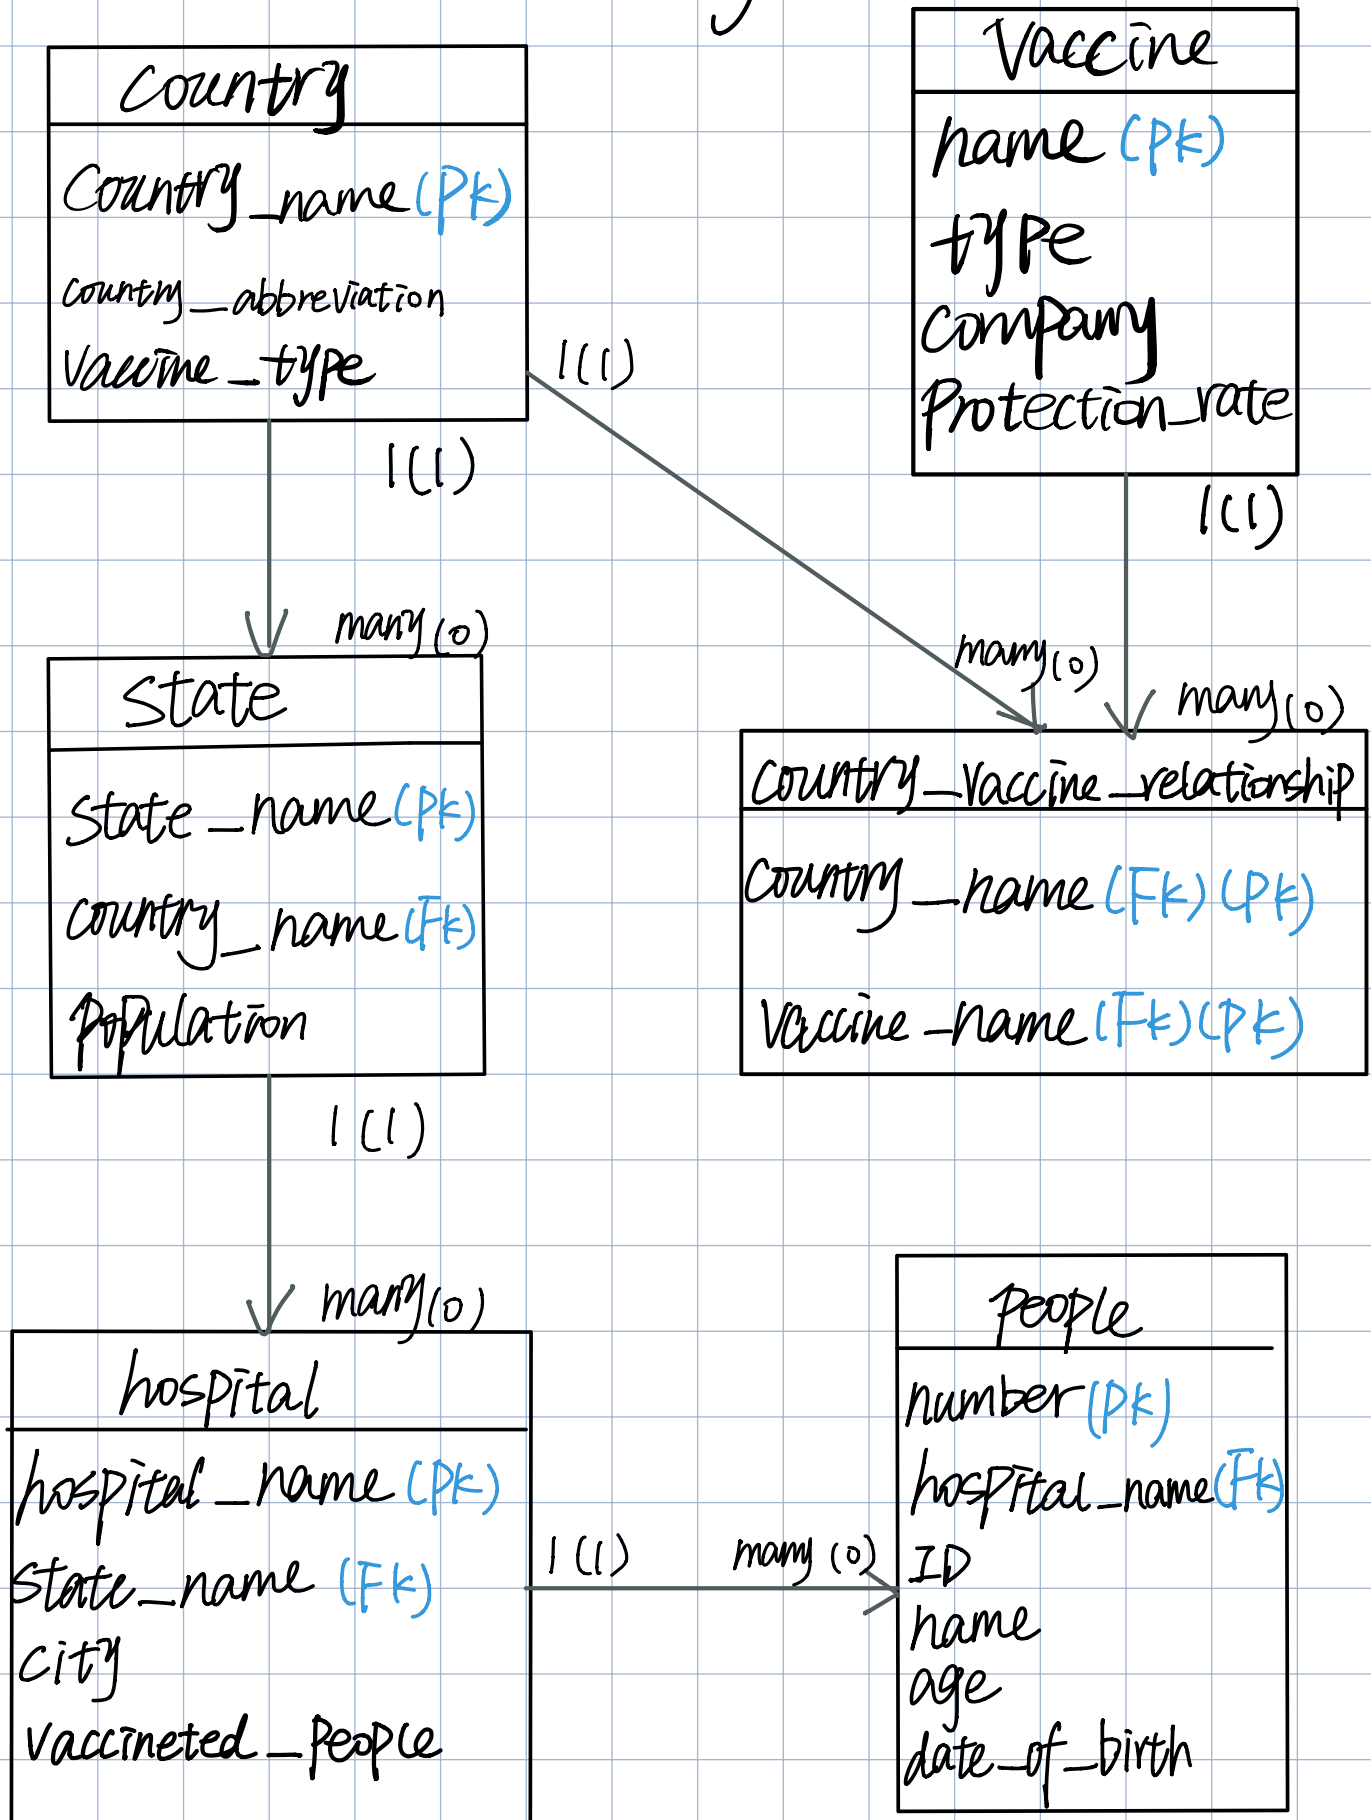 Country
Country_name (Pk)
country_abbreviation
Vaccine_type
1(1)
1(1)
many(0)
Vaccine
name (pk)
type
company
Protection_rate
1(1)
many(0)
many(0)
State
state_name (pk)
country_name (Fk)
population
1(1)
many(0)
country_vaccine_relationship
country_name (Fk) (Pk)
vaccine_name (Fk) (Pk)
hospital
hospital_name (pk)
state_name (Fk)
city
vaccineted_people
1(1)
many(0)
people
number (pk)
hospital_name (Fk)
ID
name
age
date_of_birth